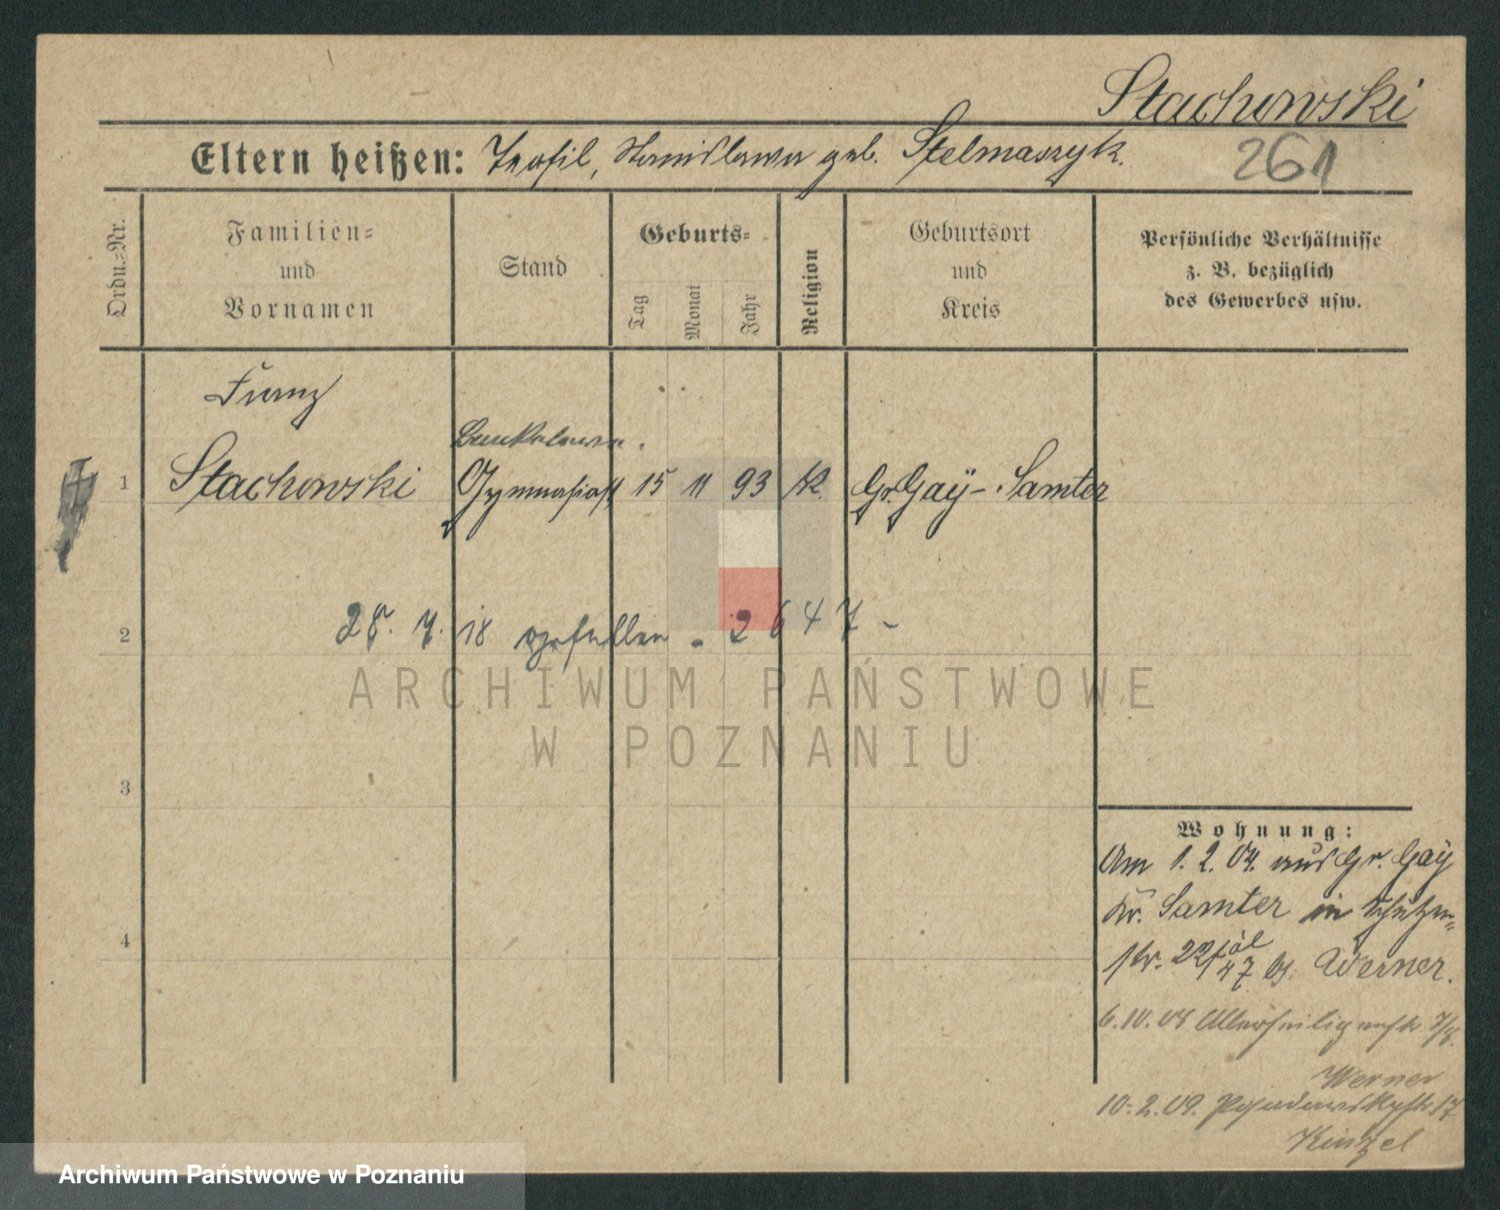 Stachowski
Eltern heißen: Teofil, Stanislawa geb. Stelmaszyk.
261
Ordn.-Nr.
Familien-
und
Vornamen
Stand
Geburts-
Tag
Monat
Jahr
Religion
Geburtsort
und
Kreis
Persönliche Verhältnisse
z. B. bezüglich
des Gewerbes usw.
Franz
Bankeleve.
1 Stachowski Gymnasiast 15 11 93 K. Gr. Gay - Samter
2 28. 7. 18 gefallen - 2647 -
3
4
Wohnung:
Am 1. 2. 04. aus Gr. Gay
Kr. Samter in Schützen-
str. bj. Werner.
6.10.08 Allerheiligenstr. 7/8.
Werner
10.2.09. 17
Kinzel
ARCHIWUM PAŃSTWOWE
W POZNANIU
Archiwum Państwowe w Poznaniu